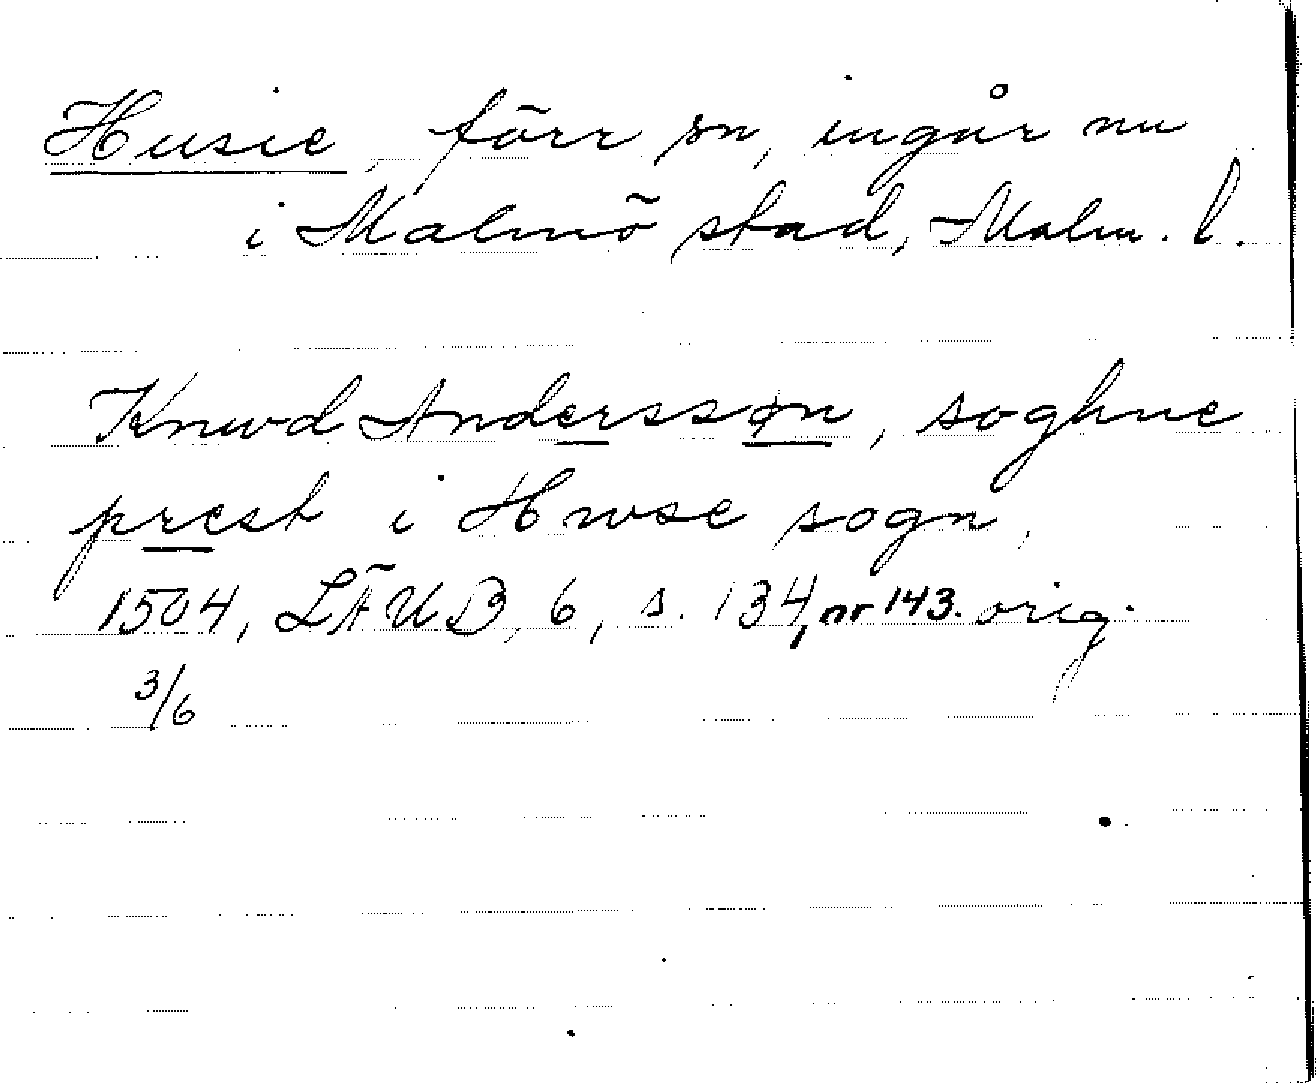 Husie, förr sn, ingår nu
i Malmö stad, Malm. l.
Knwd Anderssøn, soghne
prest i Hwse sogn,
1504, LÄUB, 6, s. 134, nr 143. orig.
3/6